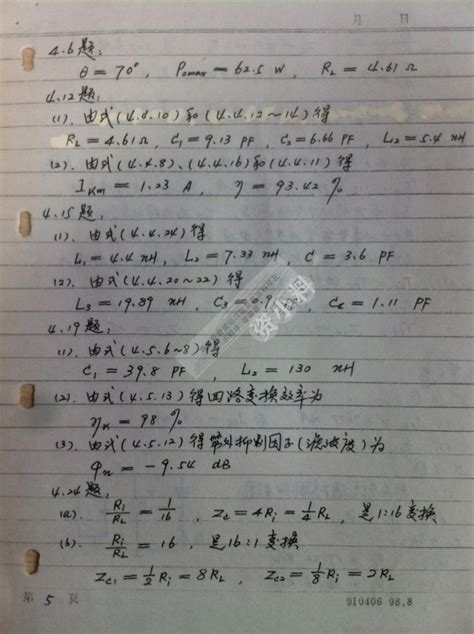 月 日
4.6题:
θ = 70°, Pomax = 62.5 W, RL = 4.61 Ω
4.12题:
(1). 由式(4.4.10)和(4.4.12~14)得
RL = 4.61Ω, C1 = 9.13 PF, C2 = 6.66 PF, L2 = 5.4 nH
(2). 由式(4.4.8)、(4.4.16)和(4.4.11)得
IKm = 1.23 A, η = 93.42 %
4.15题:
(1). 由式(4.4.24)得
L1 = 4.4 nH, L2 = 7.33 nH, C = 3.6 PF
(2). 由式(4.4.20~22)得
L3 = 19.89 nH, C3 = 0.9 PF, = 1.11 PF
4.19题:
(1). 由式(4.5.6~8)得
C1 = 39.8 PF, L2 = 130 nH
(2). 由式(4.5.13)得回路变换效率为
ηK = 98 %
(3). 由式(4.5.12)得带外抑制因子(滤波度)为
φn = -9.54 dB
4.24题:
(a). Ri/RL = 1/16, Zc = 4Ri = 1/4 RL, 是1:16变换
(b). Ri/RL = 16, 是16:1变换
Zc1 = 1/2 Ri = 8RL, Zc2 = 1/8 Ri = 2RL
第 5 页
910406 98.8
资小招